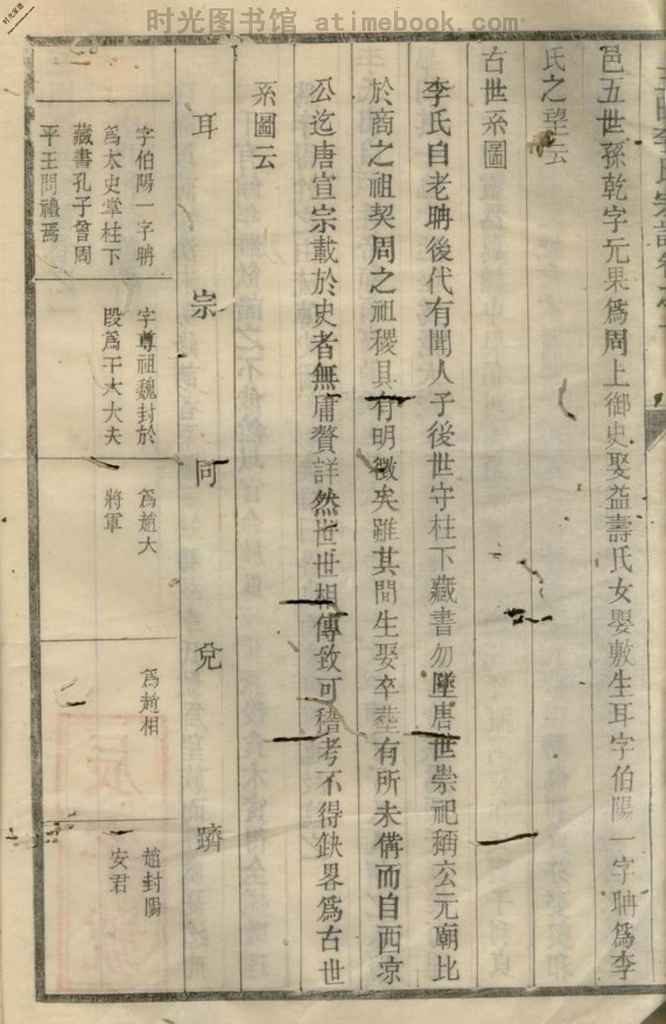 时光图书馆 atimebook.com
时光家谱
邑五世孫乾字元果爲周上御史娶益壽氏女嬰敷生耳字伯陽一字聃爲李
氏之望云
古世系圖
李氏自老聃後代有聞人子後世守柱下藏書勿墜唐世崇祀稱公元廟比
於商之祖契周之祖稷具有明徵矣雖其間生娶卒塟有所未備而自西凉
公迄唐宣宗載於史者無庸贅詳然世世相傳致可稽考不得缺畧爲古世
系圖云
耳 宗 同 兌 躋
字伯陽一字聃
爲太史掌柱下
藏書孔子曾周
平王問禮焉
字尊祖魏封於
段爲干木大夫
爲趙大
將軍
爲趙相
趙封陽
安君